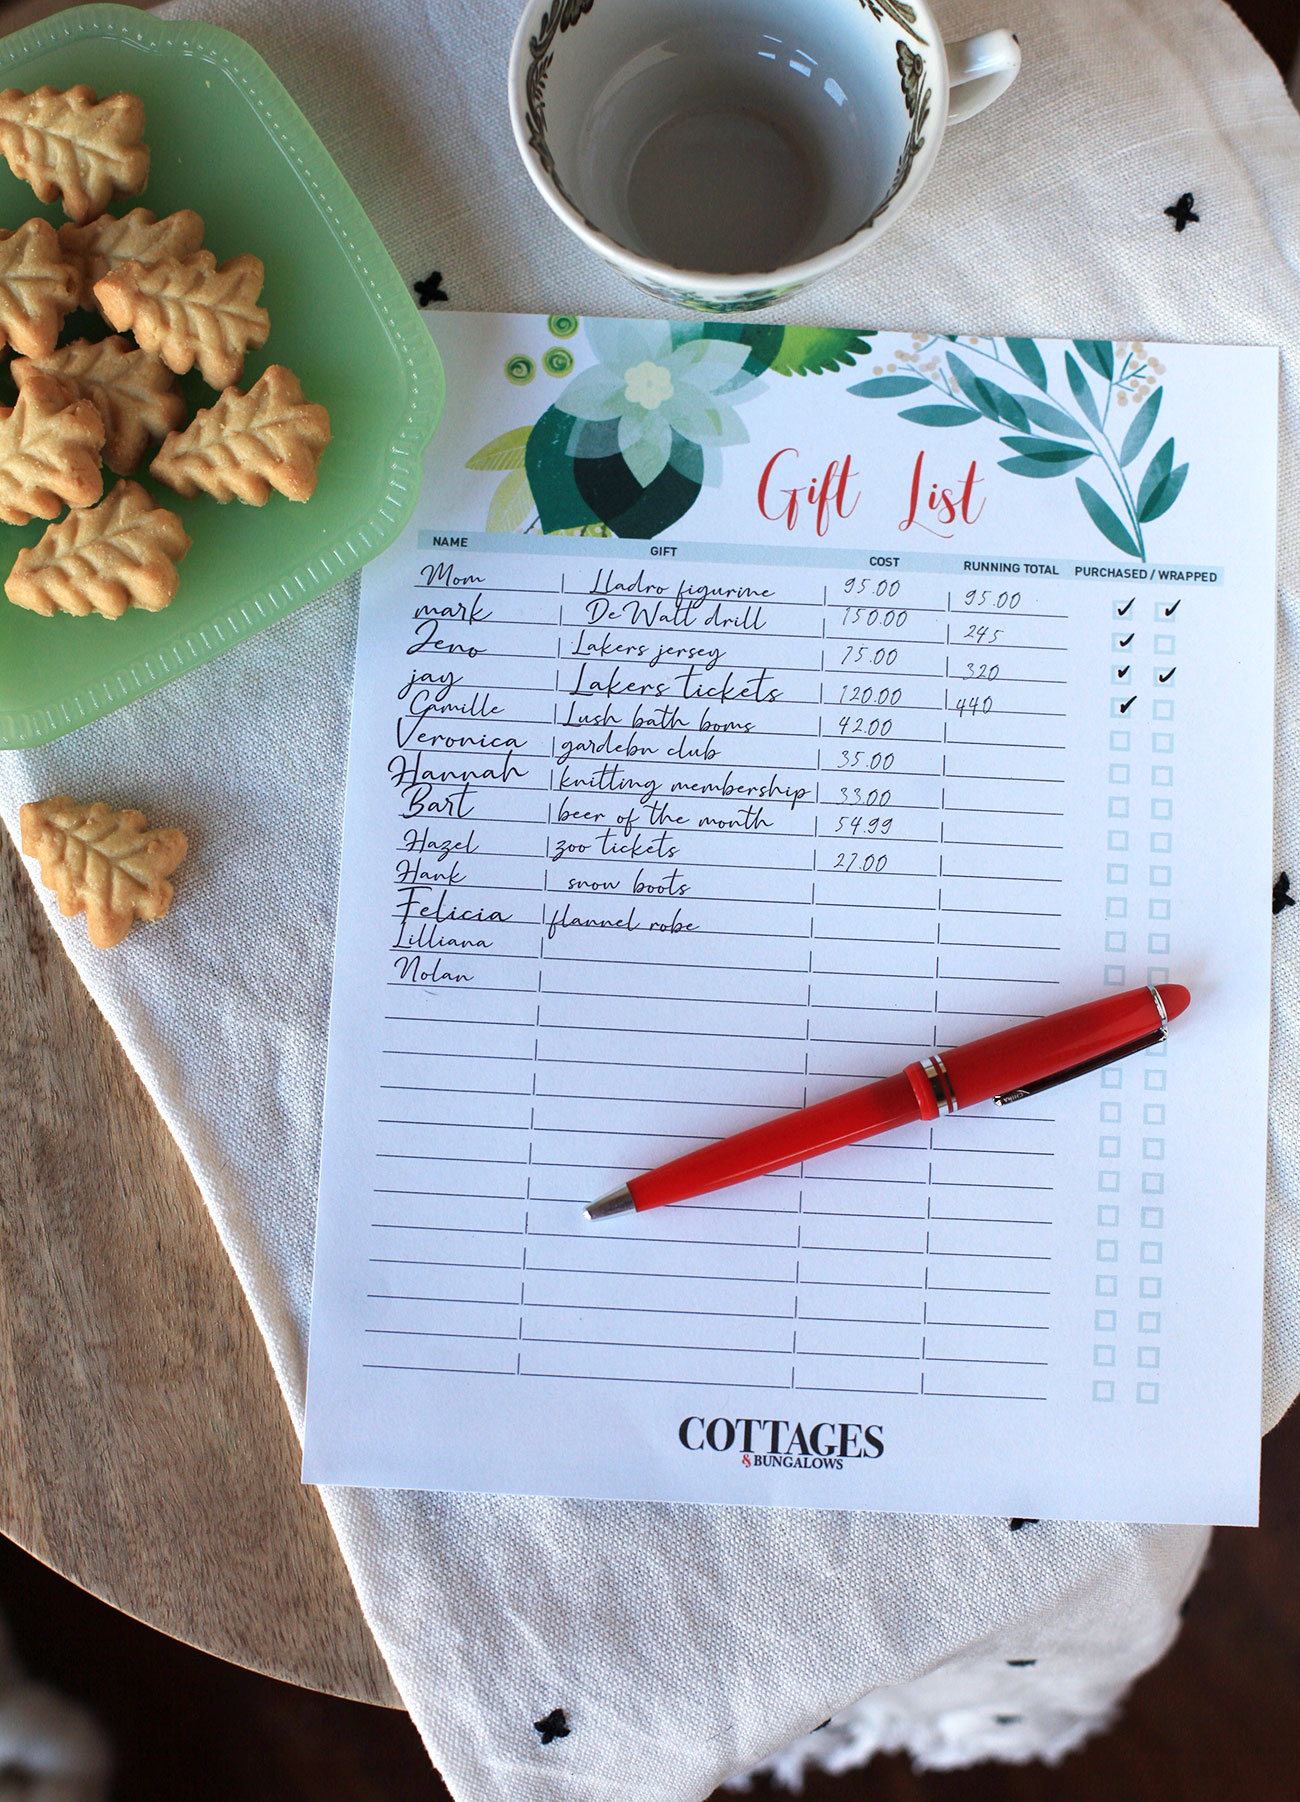 Gift List
NAME GIFT COST RUNNING TOTAL PURCHASED / WRAPPED
Mom Lladro figurine 95.00 95.00 ✓ ✓
mark DeWalt drill 150.00 245 ✓
Jeno Lakers jersey 75.00 320 ✓ ✓
jay Lakers tickets 120.00 440 ✓
Camille Lush bath boms 42.00
Veronica gardebn club 35.00
Hannah knitting membership 33.00
Bart beer of the month 54.99
Hazel zoo tickets 27.00
Hank snow boots
Felicia flannel robe
Lilliana
Nolan
COTTAGES
& BUNGALOWS